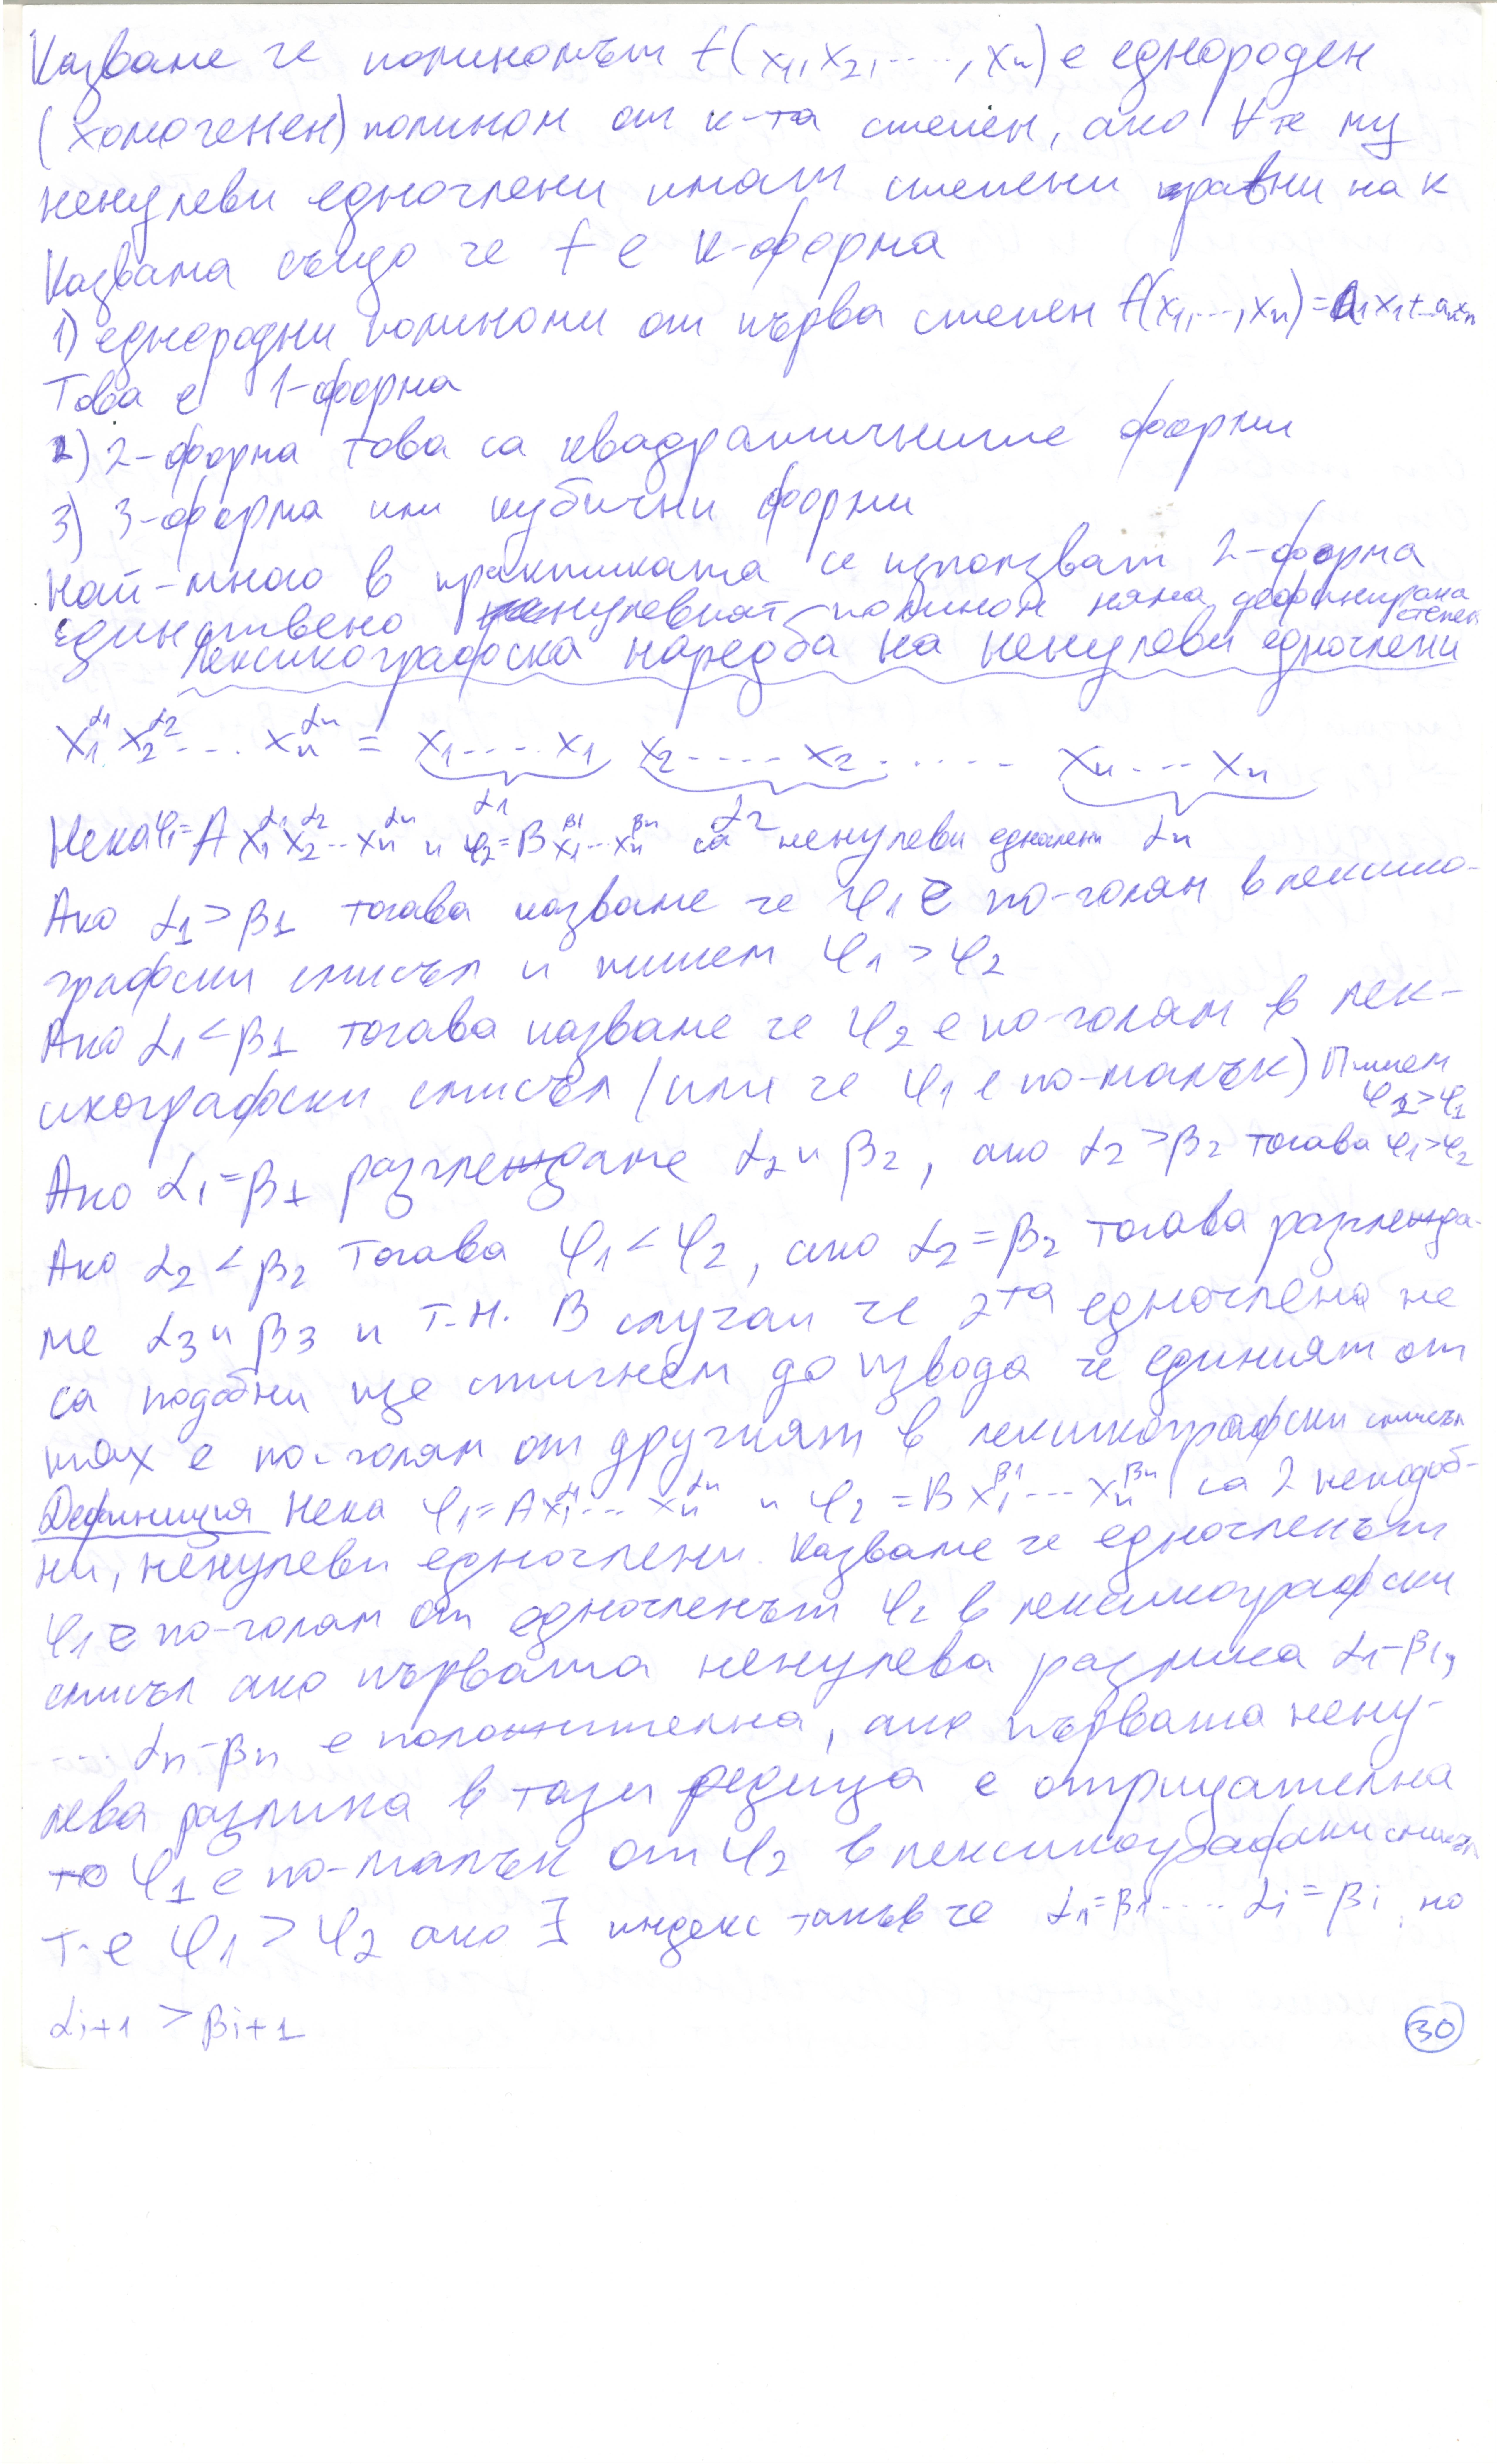 Казваме че полиномът f(x₁,x₂,....,xₙ) е еднороден
(хомогенен) полином от к-та степен, ако ∀те му
ненулеви едночлени имат степени равни на к
Казвама също че f е к-форма
1) еднородни полиноми от първа степен f(x₁,...,xₙ)=a₁x₁+...aₙxₙ
Това е 1-форма
2) 2-форма това са квадратичните форми
3) 3-форма или кубични форми
Най-много в практиката се използват 2-форма
Единствено нулевият полином няма дефинирана степен
Лексикографска наредба на ненулеви едночлени
x₁^α₁ x₂^α₂ .... xₙ^αₙ = x₁....x₁ x₂.....x₂ ..... xₙ...xₙ
α₁ α₂ αₙ
Нека φ₁=A x₁^α₁ x₂^α₂...xₙ^αₙ и φ₂=B x₁^β₁...xₙ^βₙ са ненулеви едночлени
Ако α₁>β₁ тогава казваме че φ₁ е по-голям в лексико-
графски смисъл и пишем φ₁>φ₂
Ако α₁<β₁ тогава казваме че φ₂ е по-голям в лек-
сикографски смисъл (или че φ₁ е по-малък) Пишем φ₂>φ₁
Ако α₁=β₁ разглеждаме α₂ и β₂, ако α₂>β₂ тогава φ₁>φ₂
Ако α₂<β₂ тогава φ₁<φ₂, ако α₂=β₂ тогава разглежда-
ме α₃ и β₃ и т.н. В случай че 2та едночлена не
са подобни ще стигнем до извода че единият от
тях е по-голям от другият в лексикографски смисъл
Дефиниция Нека φ₁=Ax₁^α₁...xₙ^αₙ и φ₂=Bx₁^β₁...xₙ^βₙ са 2 неподоб-
ни, ненулеви едночлени. Казваме че едночленът
φ₁ е по-голям от едночленът φ₂ в лексикографски
смисъл ако първата ненулева разлика α₁-β₁,
... αₙ-βₙ е положителна, ако първата нену-
лева разлика в тази редица е отрицателна
то φ₁ е по-малък от φ₂ в лексикографски смисъл
т-е φ₁>φ₂ ако ∃ индекс такъв че α₁=β₁.... αᵢ=βᵢ, но
αᵢ₊₁>βᵢ₊₁
30